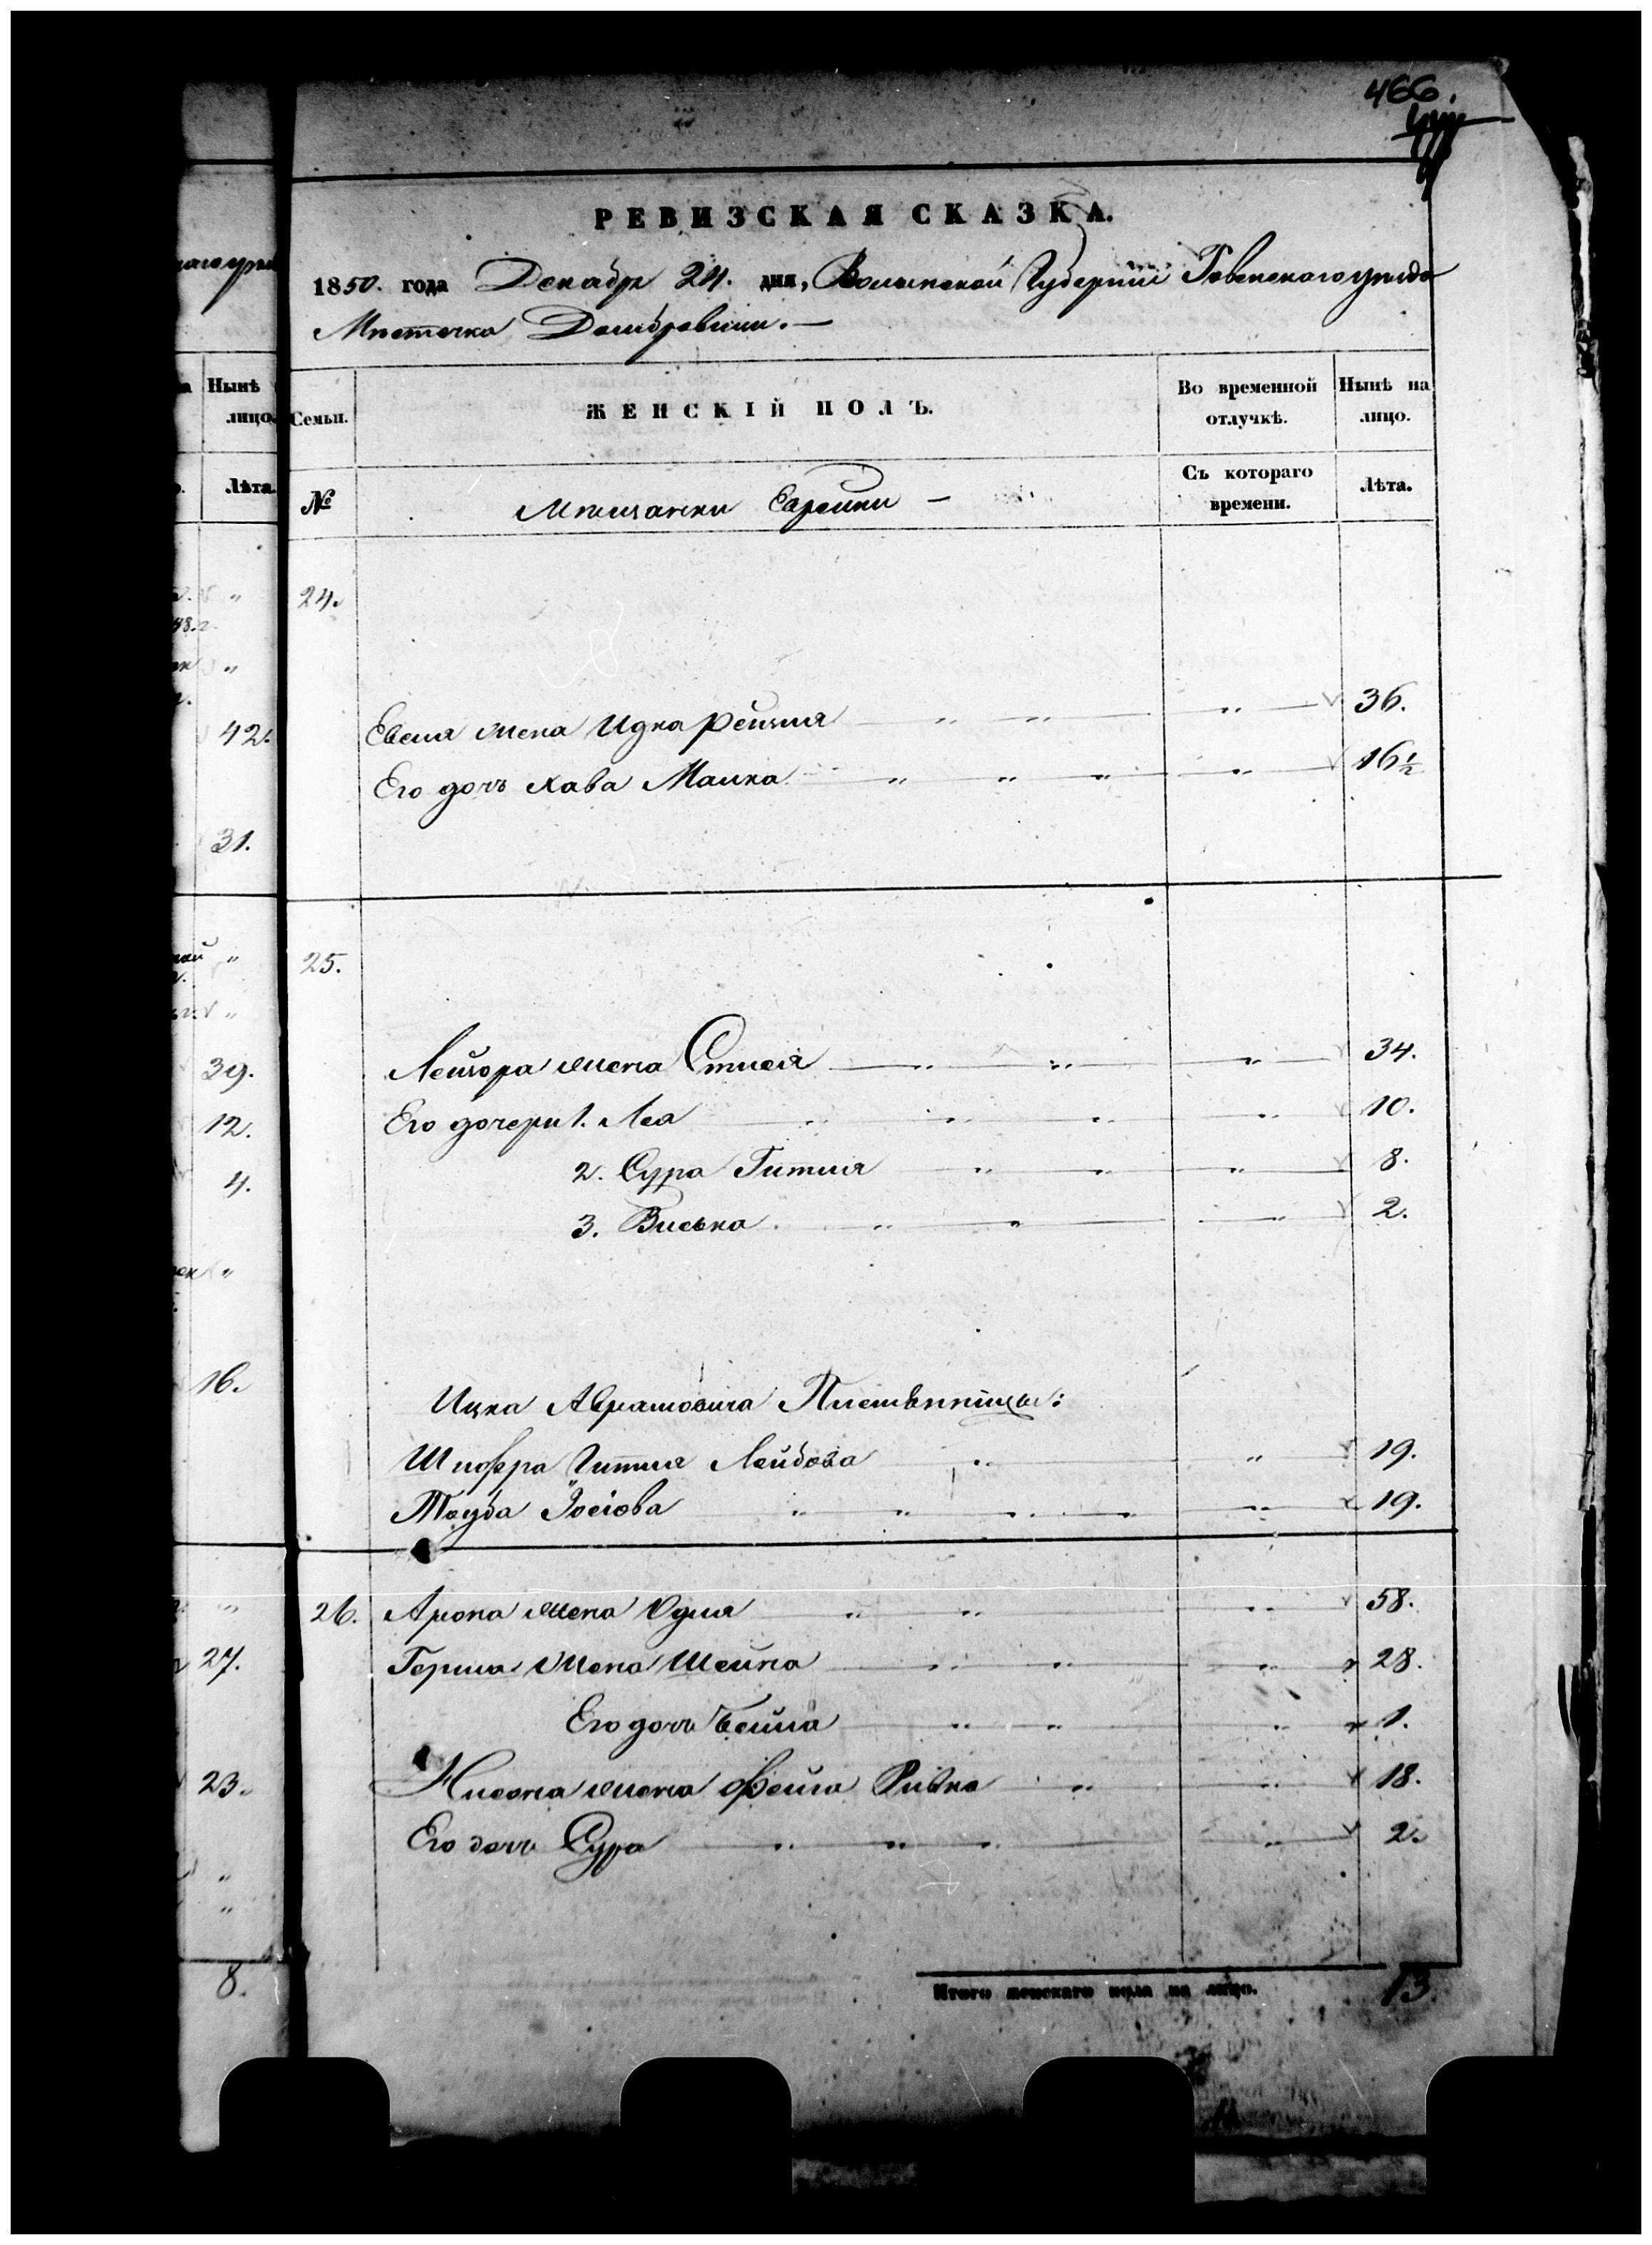 466.
РЕВИЗСКАЯ СКАЗКА.
1850. года Декабря 24. дня, Волынской Губернии Ровенского уезда
Местечка Домбровици. —
Нынѣ
лицо.
Лѣта.
Семьи.
ЖЕНСКІЙ ПОЛЪ.
Во временной
отлучкѣ.
Нынѣ на
лицо.
№
Мещанки Еврейки —
Съ котораго
времени.
Лѣта.
24.
42.
Евеля жена Идка Рейзля " " " 36.
Его дочь Хава Малка " " " " 16 1/2
31.
25.
39.
Лейзора жена Стися " " " 34.
12.
Его дочери 1. Лея " " " " 10.
4.
2. Сура Гитля " " " 8.
3. Виська " " " 2.
16.
Ицка Абрамовича Племянницы:
Шифра Гитля Лейбова " " 19.
Тауба Іосіова " " " " " 19.
26. Арона жена Удля " " " 58.
27.
Герша жена Шейна " " " 28.
Его дочь Бейла " " " 1.
23.
Нисона жена Фейга Ривка " " 18.
Его дочь Сура " " " " 2.
8.
Итого женскаго пола на лицо. 13